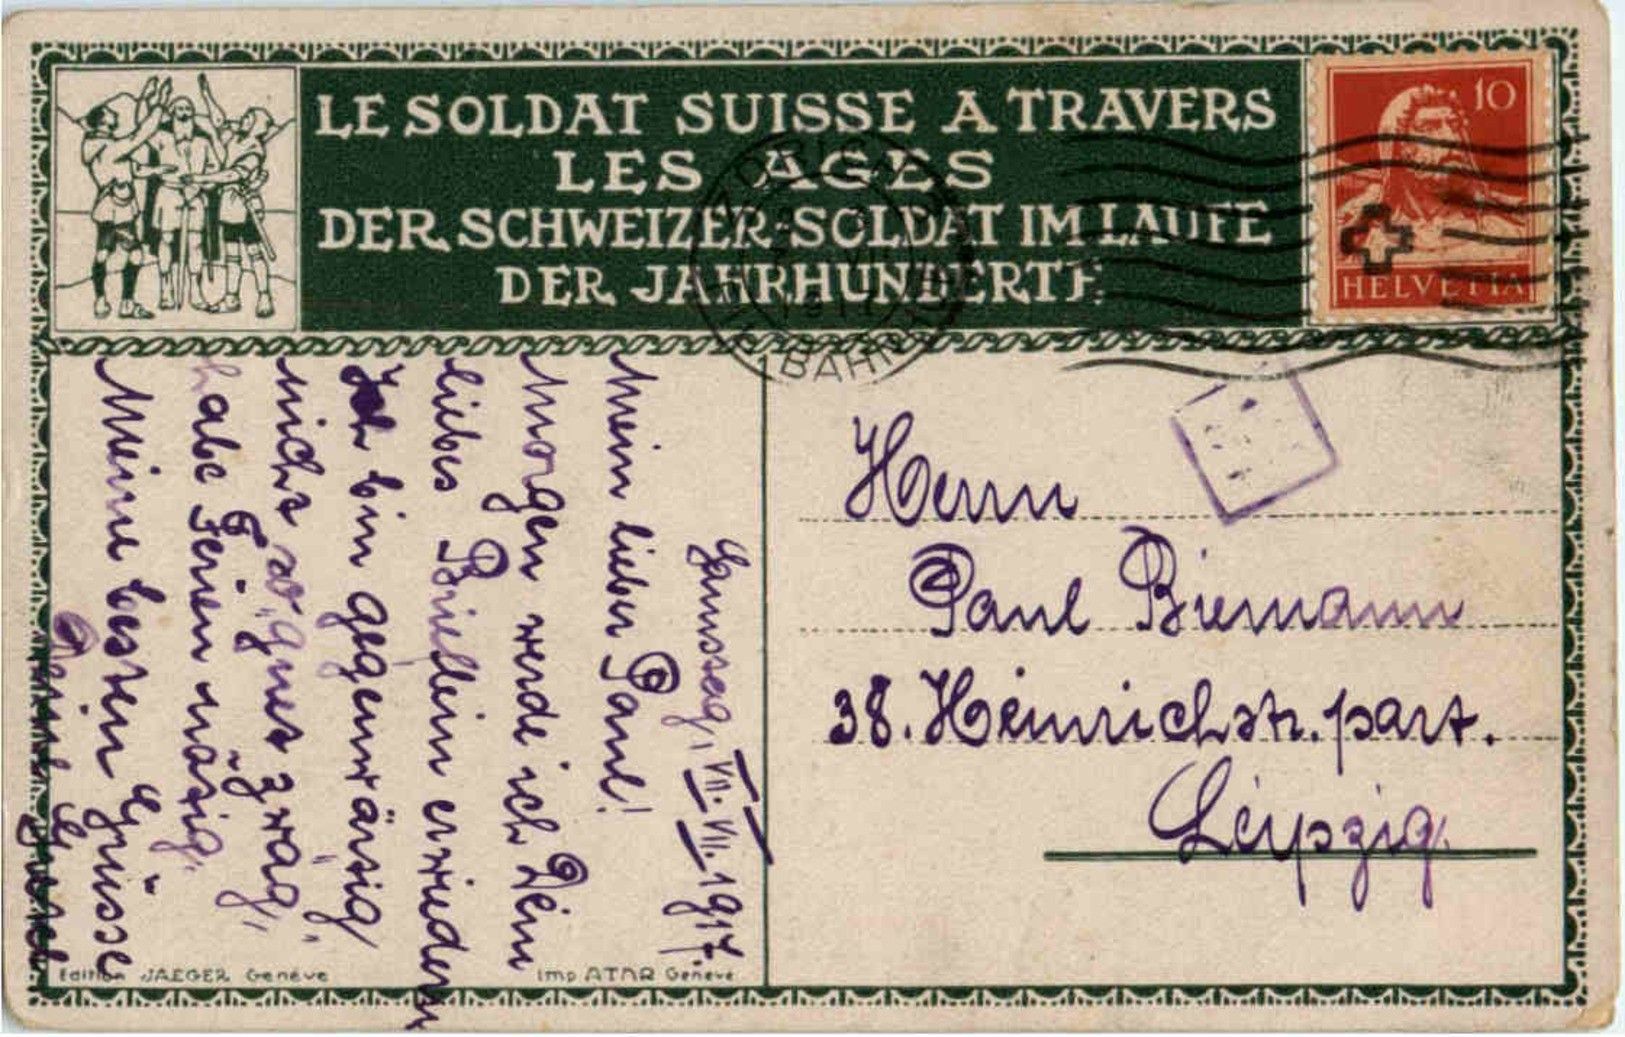 LE SOLDAT SUISSE A TRAVERS
LES AGES
DER SCHWEIZER-SOLDAT IM LAUFE
DER JAHRHUNDERTE
10
HELVETIA
Samstag, VII. VII. 1917.
Mein lieber Paul!
Morgen werde ich Dein
liebes Brieflein erwidern
Ich bin gegenwärtig
nicht so "gut zwäg",
habe Ferien nötig.
Meine besten Grüsse
Dein
Herrn
Paul Biemann
38. Heinrichstr. part.
Leipzig.
Edition JAEGER Genève
Imp ATAR Genève